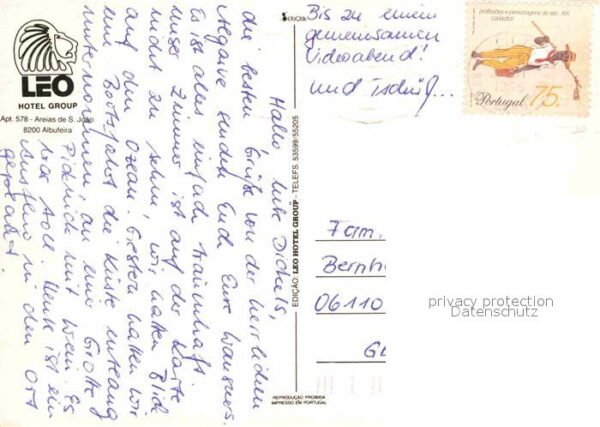 LEO
HOTEL GROUP
Apt. 578 - Areias de S. João
8200 Albufeira
Hallo liebe Dichels,
die besten Grüße von der herrlichen
Algarve senden Euch Eure
Es ist alles einfach traumhaft.
unser Zimmer ist auf der Karte
nicht zu sehen, wir hatten Blick
auf den Ozean. Gestern hatten wir
eine Bootsfahrt die Küste entlang
unternommen, an einer Grotte
Picknick mit Wein. Es
war toll. Heute ist ein
Ausflug in den Ort
geplant.
Bis zu einem
gemeinsamen
Videoabend!
und Tschüß...
EDIÇÃO: LEO HOTEL GROUP - TELEFS. 53599/55205
REPRODUÇÃO PROIBIDA
IMPRESSO EM PORTUGAL
profissões e personagens do séc. XIX
Portugal 75.
Fam.
Bernh
06110
privacy protection
Datenschutz